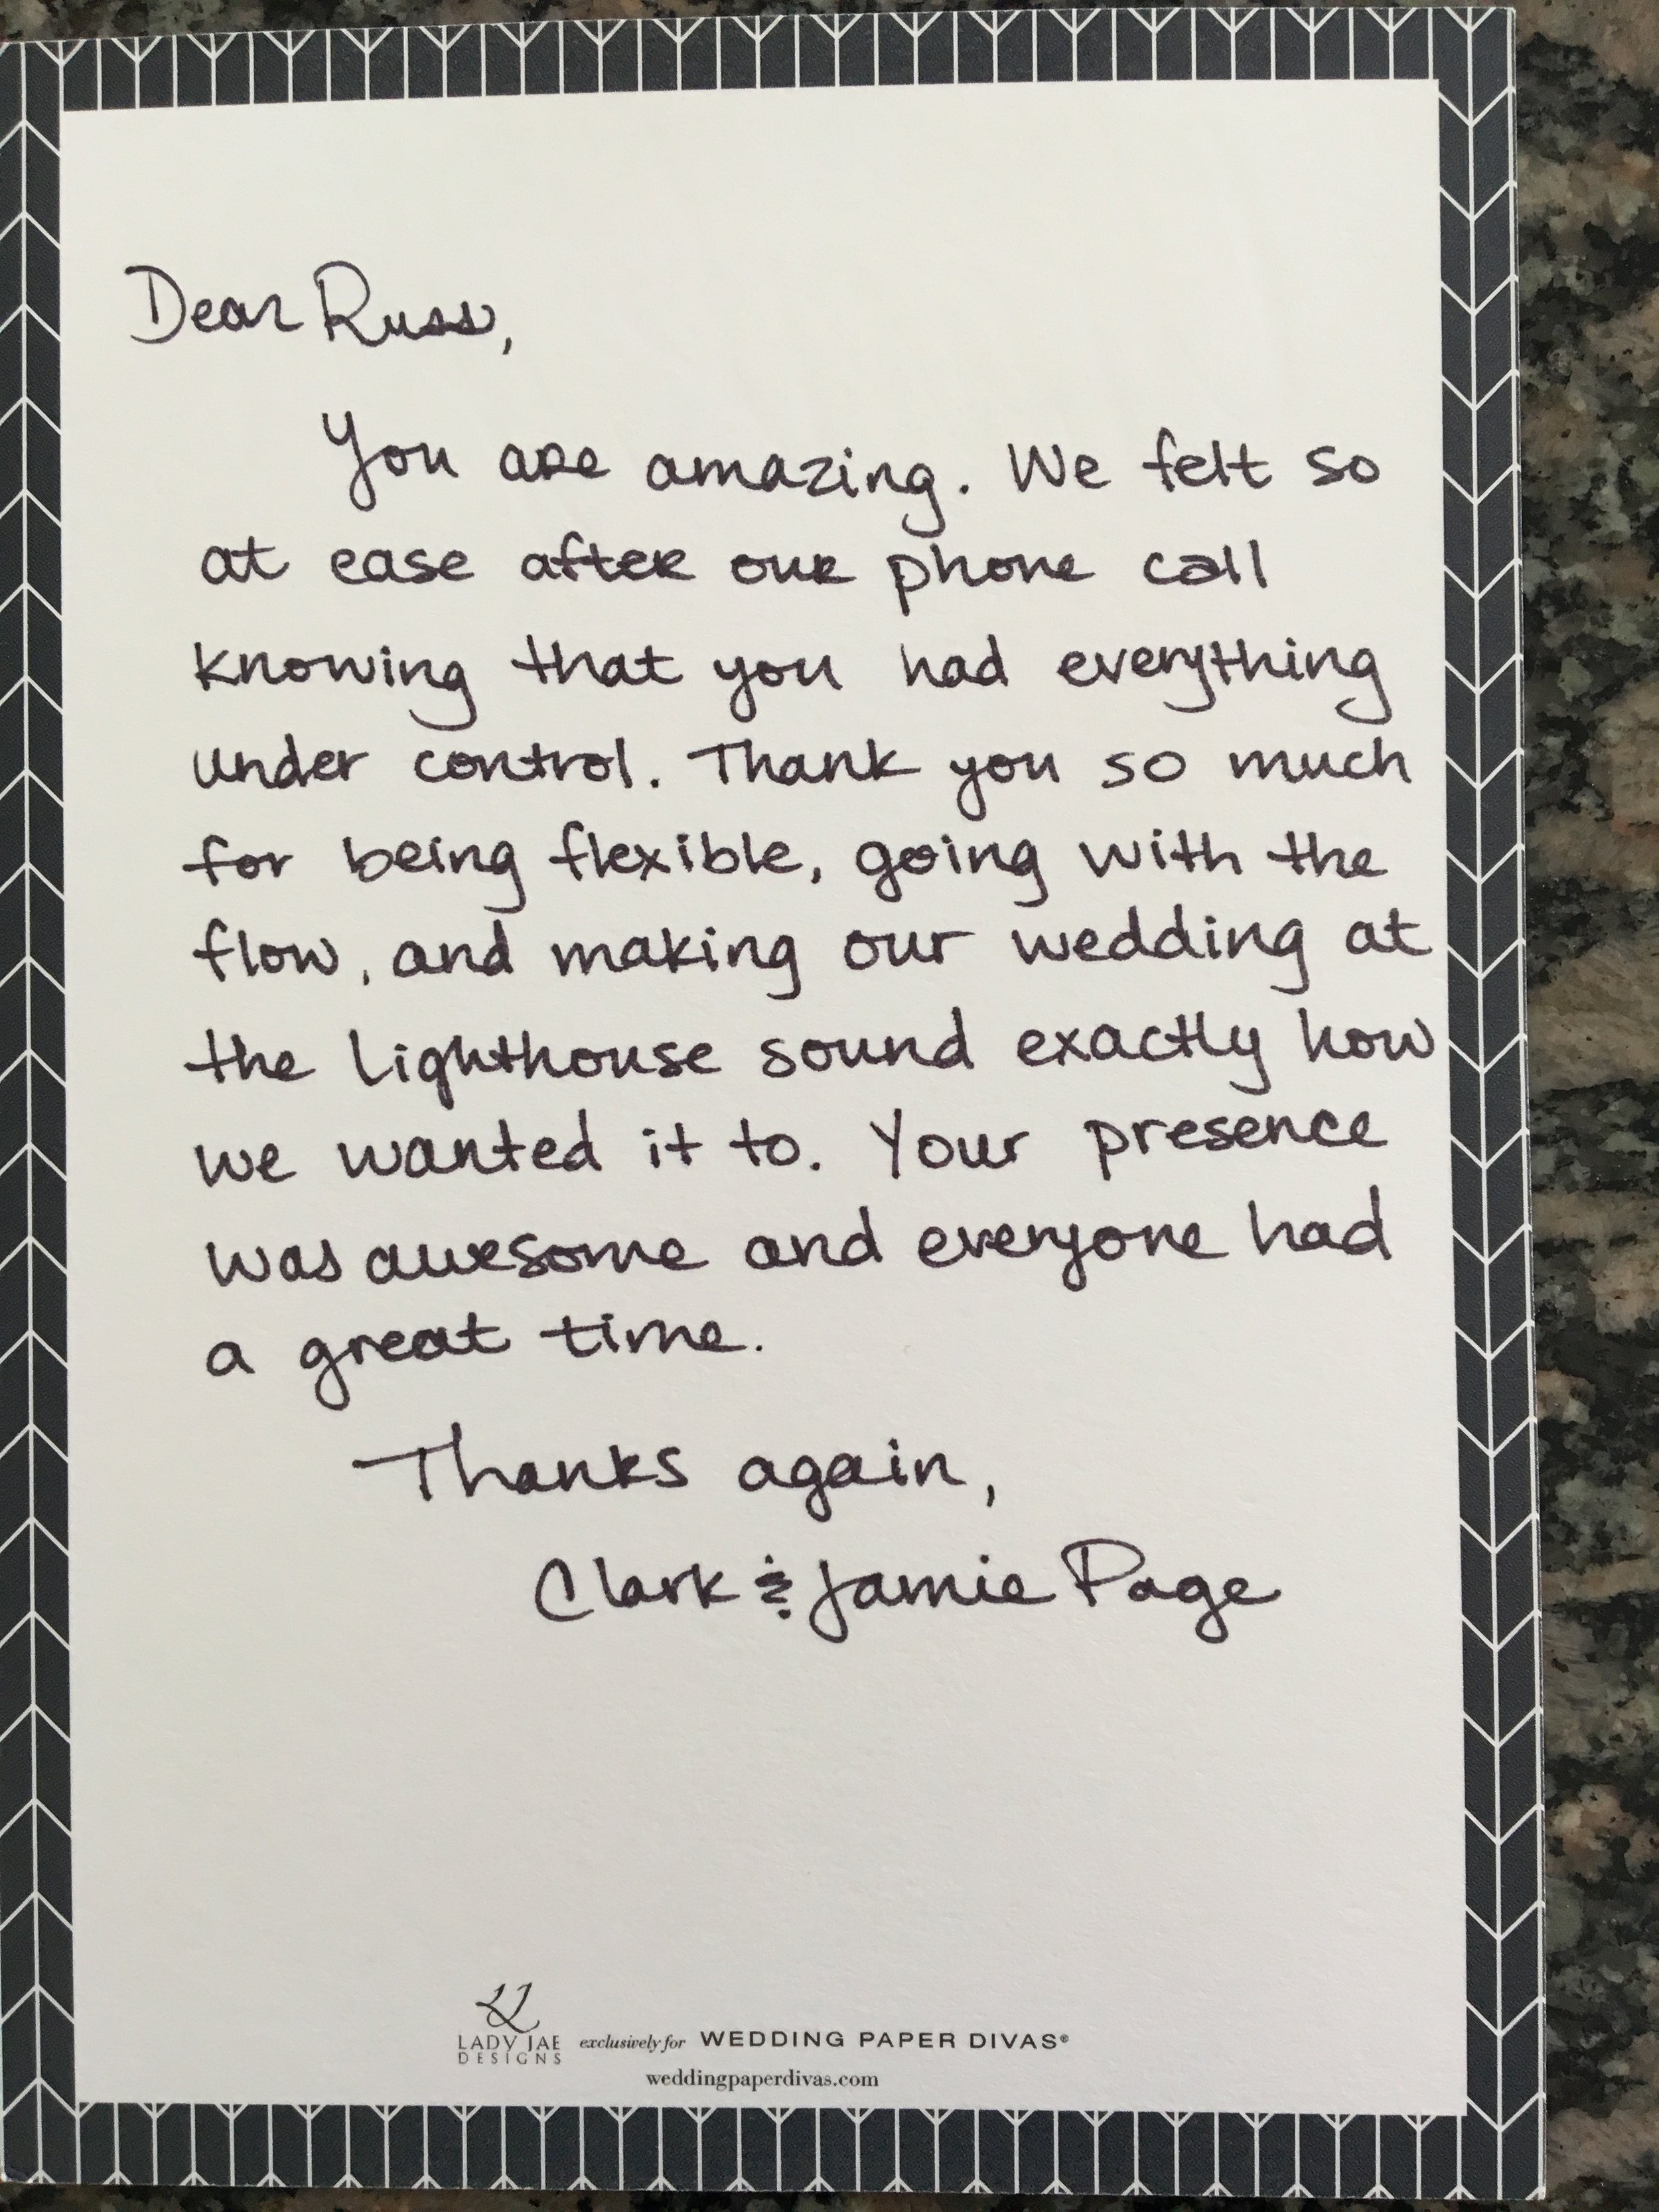 Dear Russ,
You are amazing. We felt so
at ease after our phone call
knowing that you had everything
under control. Thank you so much
for being flexible, going with the
flow, and making our wedding at
the lighthouse sound exactly how
we wanted it to. Your presence
was awesome and everyone had
a great time.
Thanks again,
Clark & Jamie Page
LJ
LADY JAE
DESIGNS
exclusively for WEDDING PAPER DIVAS®
weddingpaperdivas.com